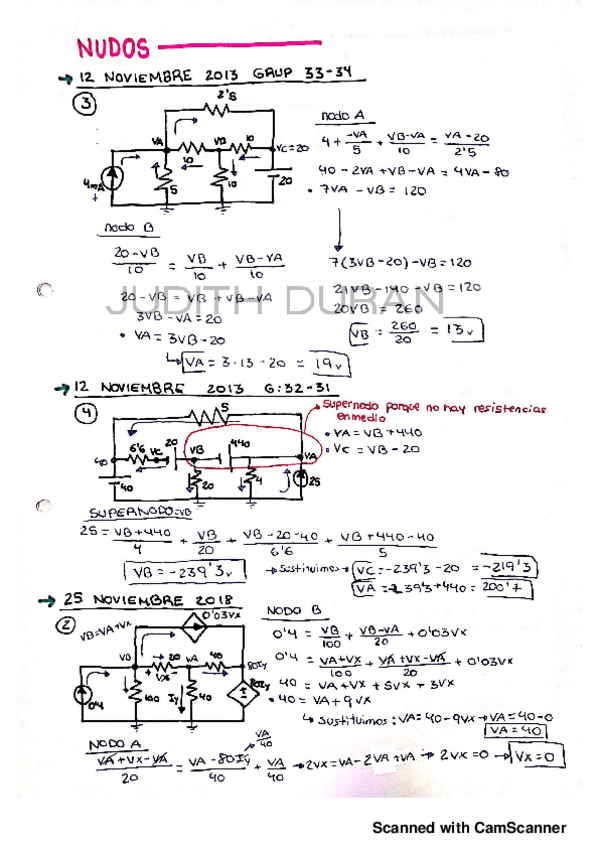 NUDOS
→ 12 NOVIEMBRE 2013 GRUP 33-34
③
2'5
VA
10
VB
10
VC=20
4mA
5
10
20
nodo A
4 + -VA/5 + VB-VA/10 = VA-20/2'5
40 - 2VA + VB - VA = 4VA - 80
• 7VA - VB = 120
nodo B
20-VB/10 = VB/10 + VB-VA/10
20-VB = VB + VB-VA
3VB-VA = 20
• VA = 3VB-20
VA = 3·13-20 = 19v
7(3VB-20)-VB = 120
21VB-140-VB = 120
20VB = 260
VB = 260/20 = 13v
JUDITH DURAN
→ 12 NOVIEMBRE 2013 G:32-31
④
5
6'6
VC
20
VB
440
VA
40
40
20
4
25
Supernodo porque no hay resistencias
en medio
• VA = VB + 440
• VC = VB - 20
SUPERNODO=VB
25 = VB+440/4 + VB/20 + VB-20-40/6'6 + VB+440-40/5
VB = -239'3v
→ Sustituimos → VC = -239'3-20 = -219'3
VA = -239'3+440 = 200'7
→ 25 NOVIEMBRE 2018
②
VB=VA+VX
0'03VX
VB
20
VA
40
80Iy
+ VX -
0'4
100
Iy
40
80Iy
NODO B
0'4 = VB/100 + VB-VA/20 + 0'03VX
0'4 = VA+VX/100 + VA+VX-VA/20 + 0'03VX
40 = VA+VX+5VX+3VX
• 40 = VA+9VX
↳ Sustituimos: VA=40-9VX → VA=40-0
VA=40
NODO A
VA/40
VA+VX-VA/20 = VA-80Iy/40 + VA/40 → 2VX=VA-2VA+VA → 2VX=0 → VX=0
Scanned with CamScanner